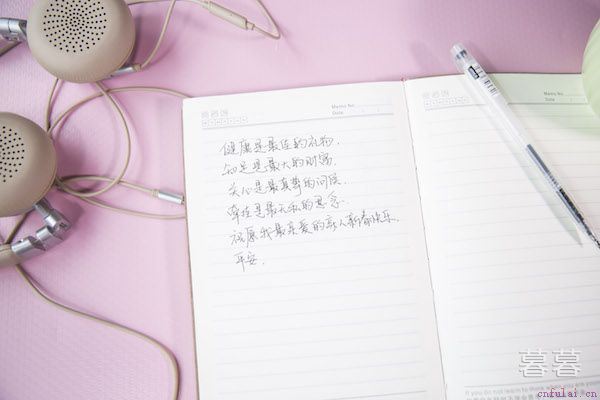 Memo No.
Date
健康是最佳的礼物,
知足是最大的财富,
关心是最真挚的问候,
牵挂是最无私的思念.
祝愿我最亲爱的亲人新春快乐,
平安.
Memo No.
Date
If you do not learn to think
暮暮
cnfulai.cn